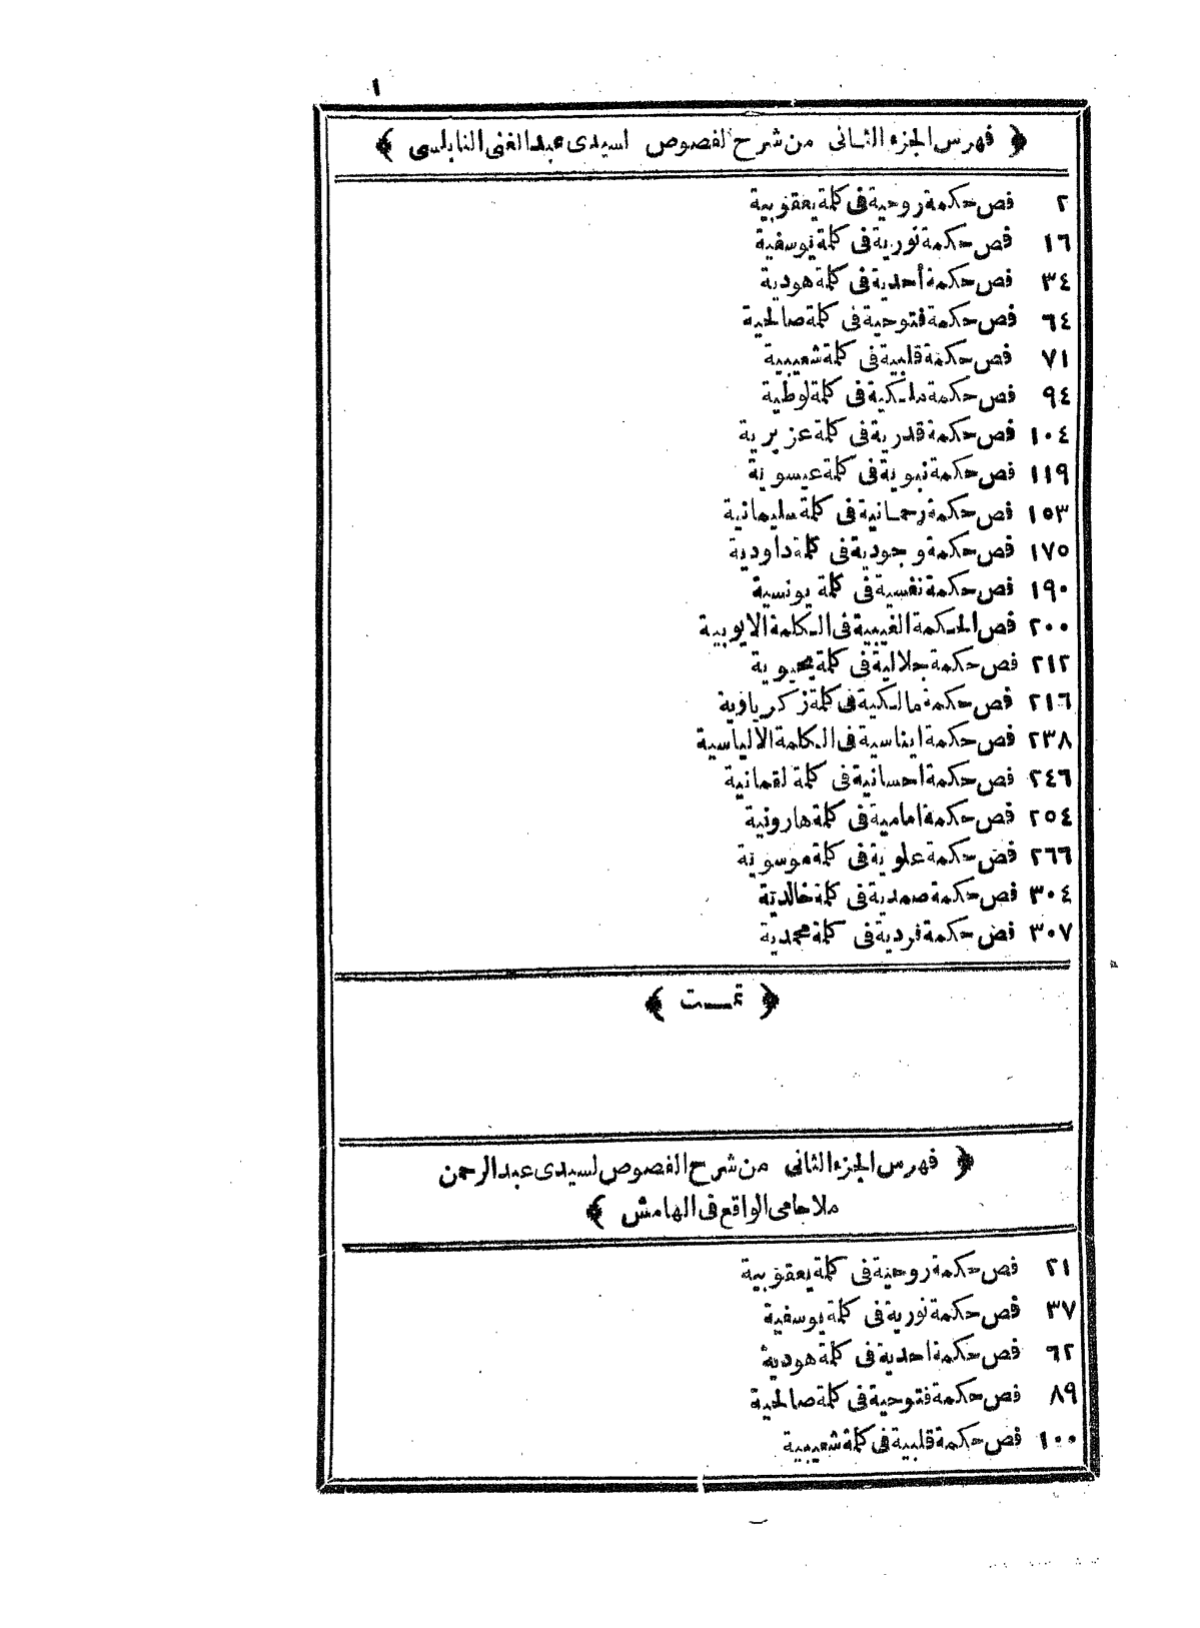 ١
﴿ فهرس الجزء الثانى من شرح الفصوص لسيدى عبد الغنى النابلسى ﴾
٢ فص حكمة روحية فى كلمة يعقوبية
١٦ فص حكمة نورية فى كلمة يوسفية
٣٤ فص حكمة أحدية فى كلمة هودية
٦٤ فص حكمة فتوحية فى كلمة صالحية
٧١ فص حكمة قلبية فى كلمة شعيبية
٩٤ فص حكمة ملكية فى كلمة لوطية
١٠٤ فص حكمة قدرية فى كلمة عزيرية
١١٩ فص حكمة نبوية فى كلمة عيسوية
١٥٣ فص حكمة رحمانية فى كلمة سليمانية
١٧٥ فص حكمة وجودية فى كلمة داودية
١٩٠ فص حكمة نفسية فى كلمة يونسية
٢٠٠ فص الحكمة الغيبية فى الكلمة الايوبية
٢١٢ فص حكمة جلالية فى كلمة يحيوية
٢١٦ فص حكمة مالكية فى كلمة زكرياوية
٢٣٨ فص حكمة ايناسية فى الكلمة الالياسية
٢٤٦ فص حكمة احسانية فى كلمة لقمانية
٢٥٤ فص حكمة امامية فى كلمة هارونية
٢٦٦ فص حكمة علوية فى كلمة موسوية
٣٠٤ فص حكمة صمدية فى كلمة خالدية
٣٠٧ فص حكمة فردية فى كلمة محمدية
﴿ تمـــت ﴾
﴿ فهرس الجزء الثانى من شرح الفصوص لسيدى عبد الرحمن
ملا جامى الواقع فى الهامش ﴾
٢١ فص حكمة روحية فى كلمة يعقوبية
٣٧ فص حكمة نورية فى كلمة يوسفية
٦٢ فص حكمة احدية فى كلمة هودية
٨٩ فص حكمة فتوحية فى كلمة صالحية
١٠٠ فص حكمة قلبية فى كلمة شعيبية